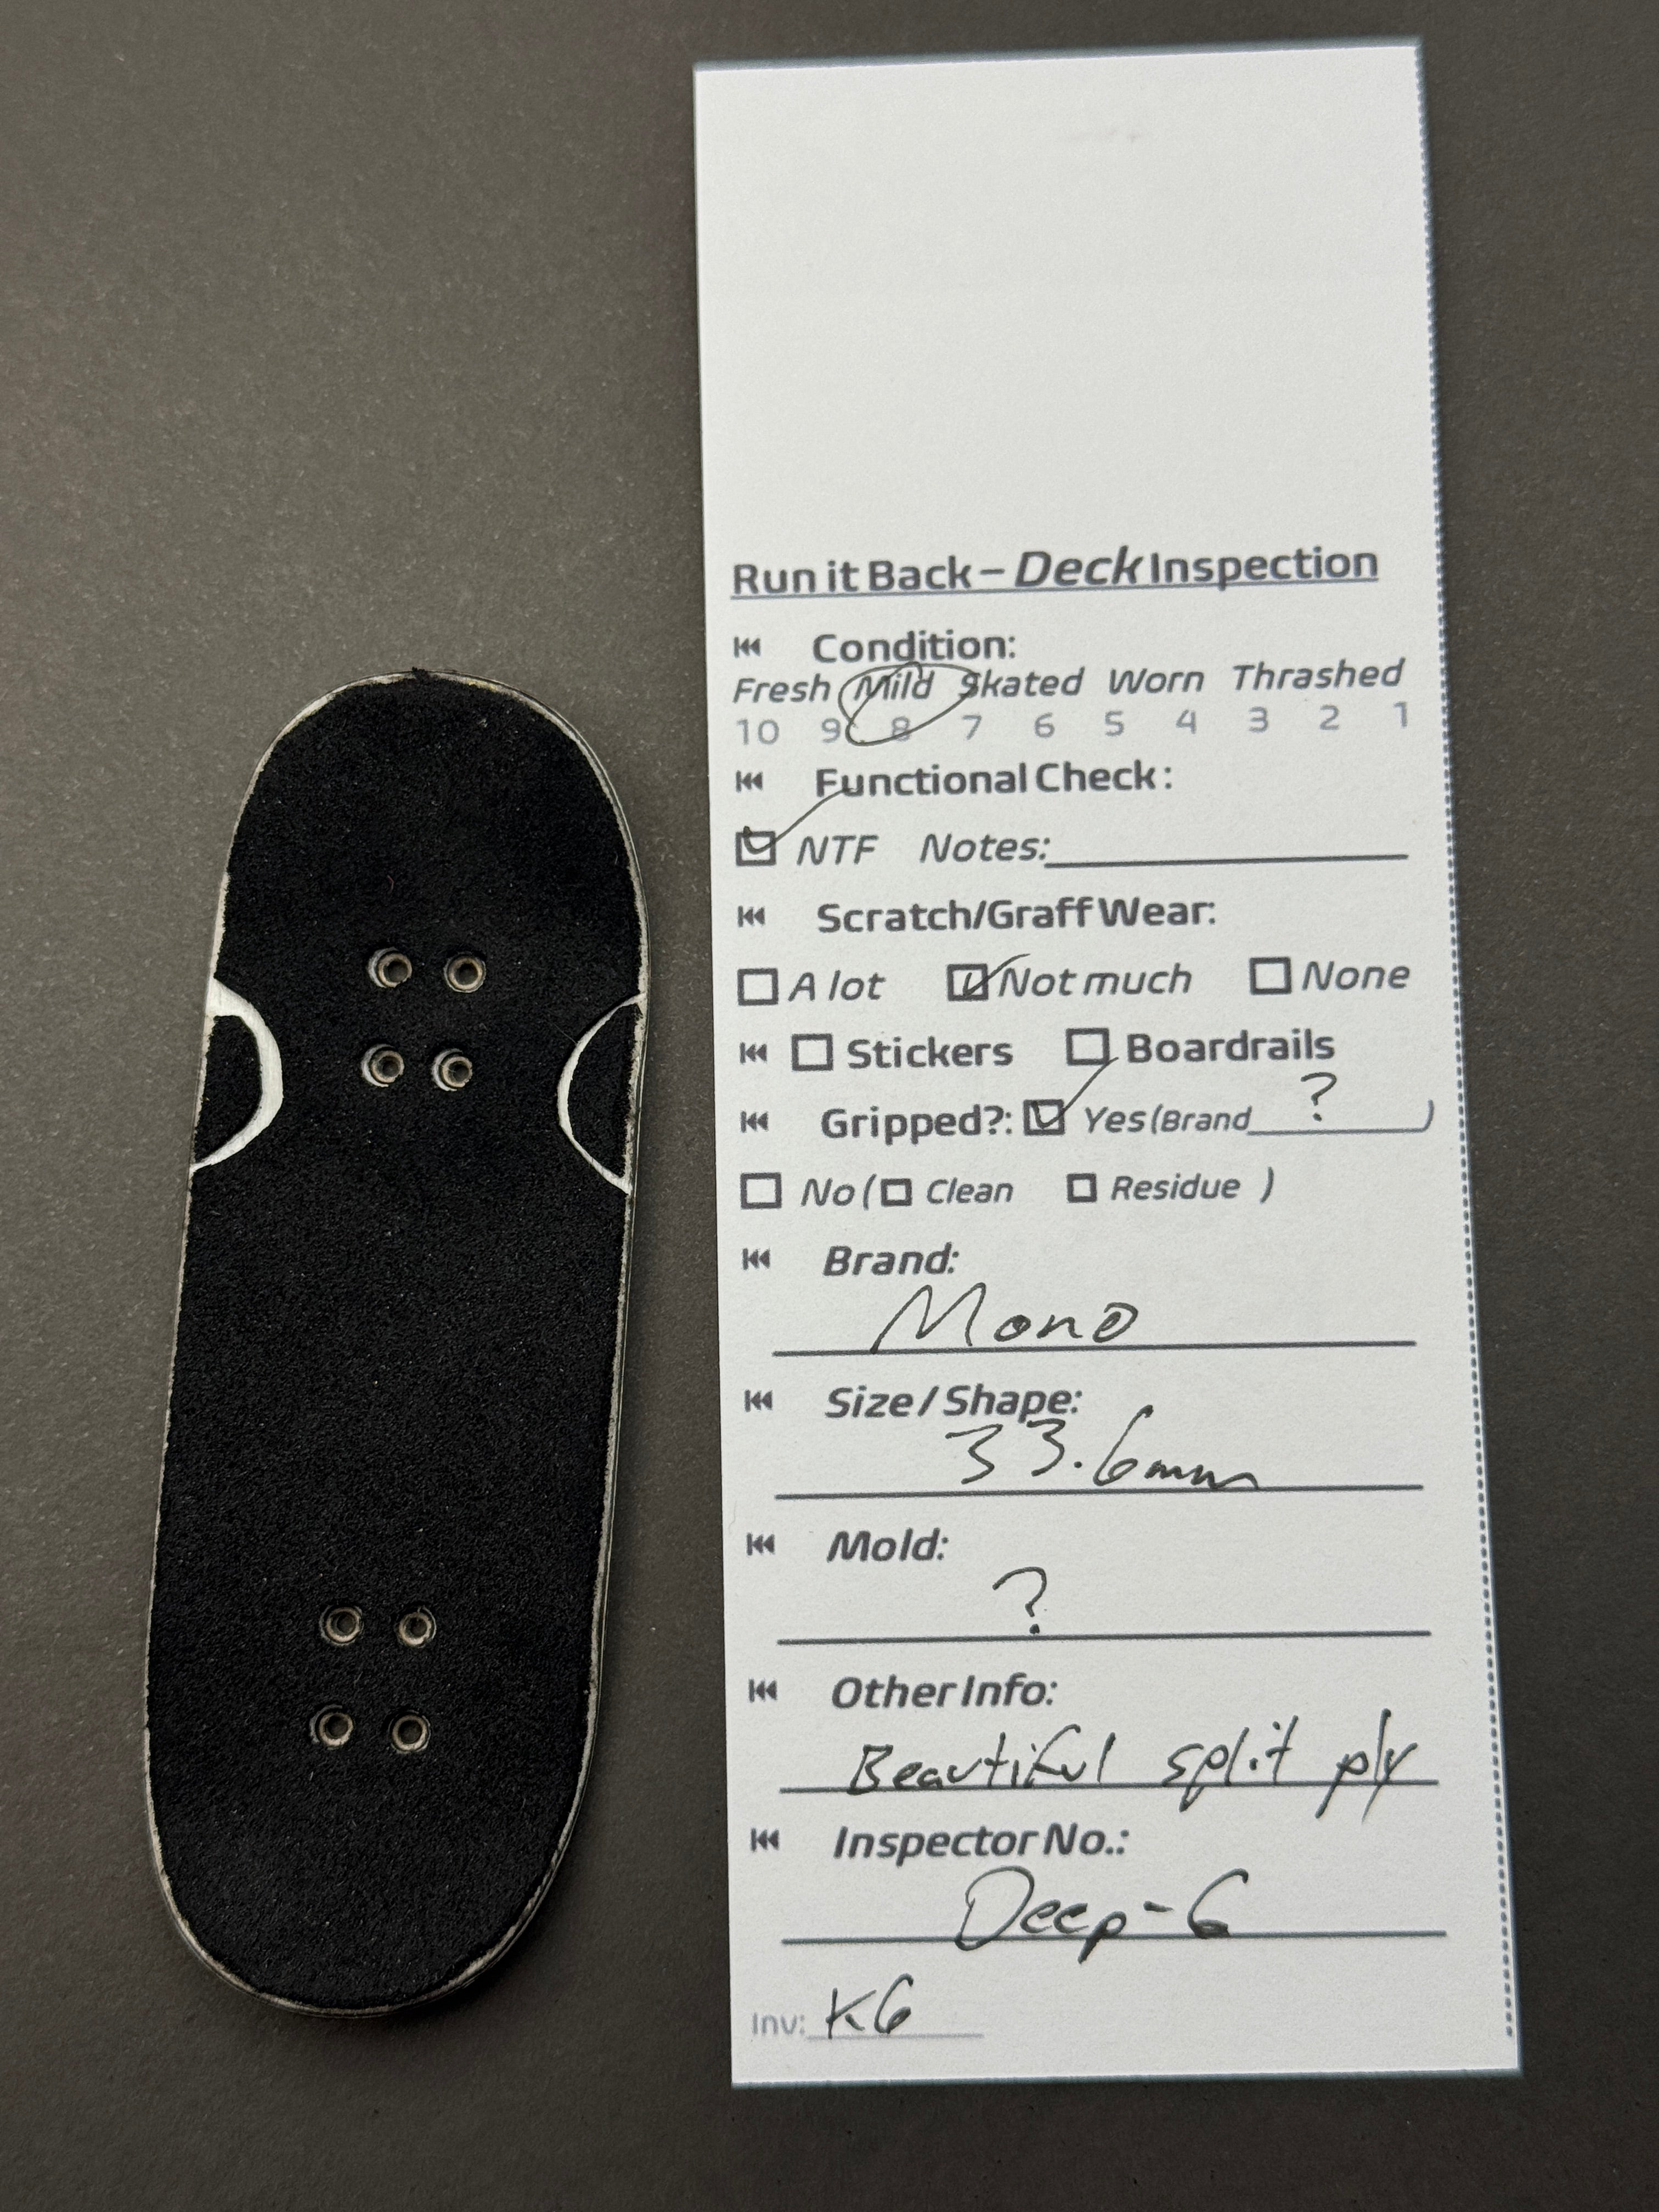 Run it Back – Deck Inspection
Condition:
Fresh Mild Skated Worn Thrashed
10 9 8 7 6 5 4 3 2 1
Functional Check:
NTF Notes:
Scratch/Graff Wear:
A lot Not much None
Stickers Boardrails
Gripped?: Yes (Brand ? )
No ( Clean Residue )
Brand:
Mono
Size / Shape:
33.6mm
Mold:
?
Other Info:
Beautiful split ply
Inspector No.:
Deep-6
Inv: K6